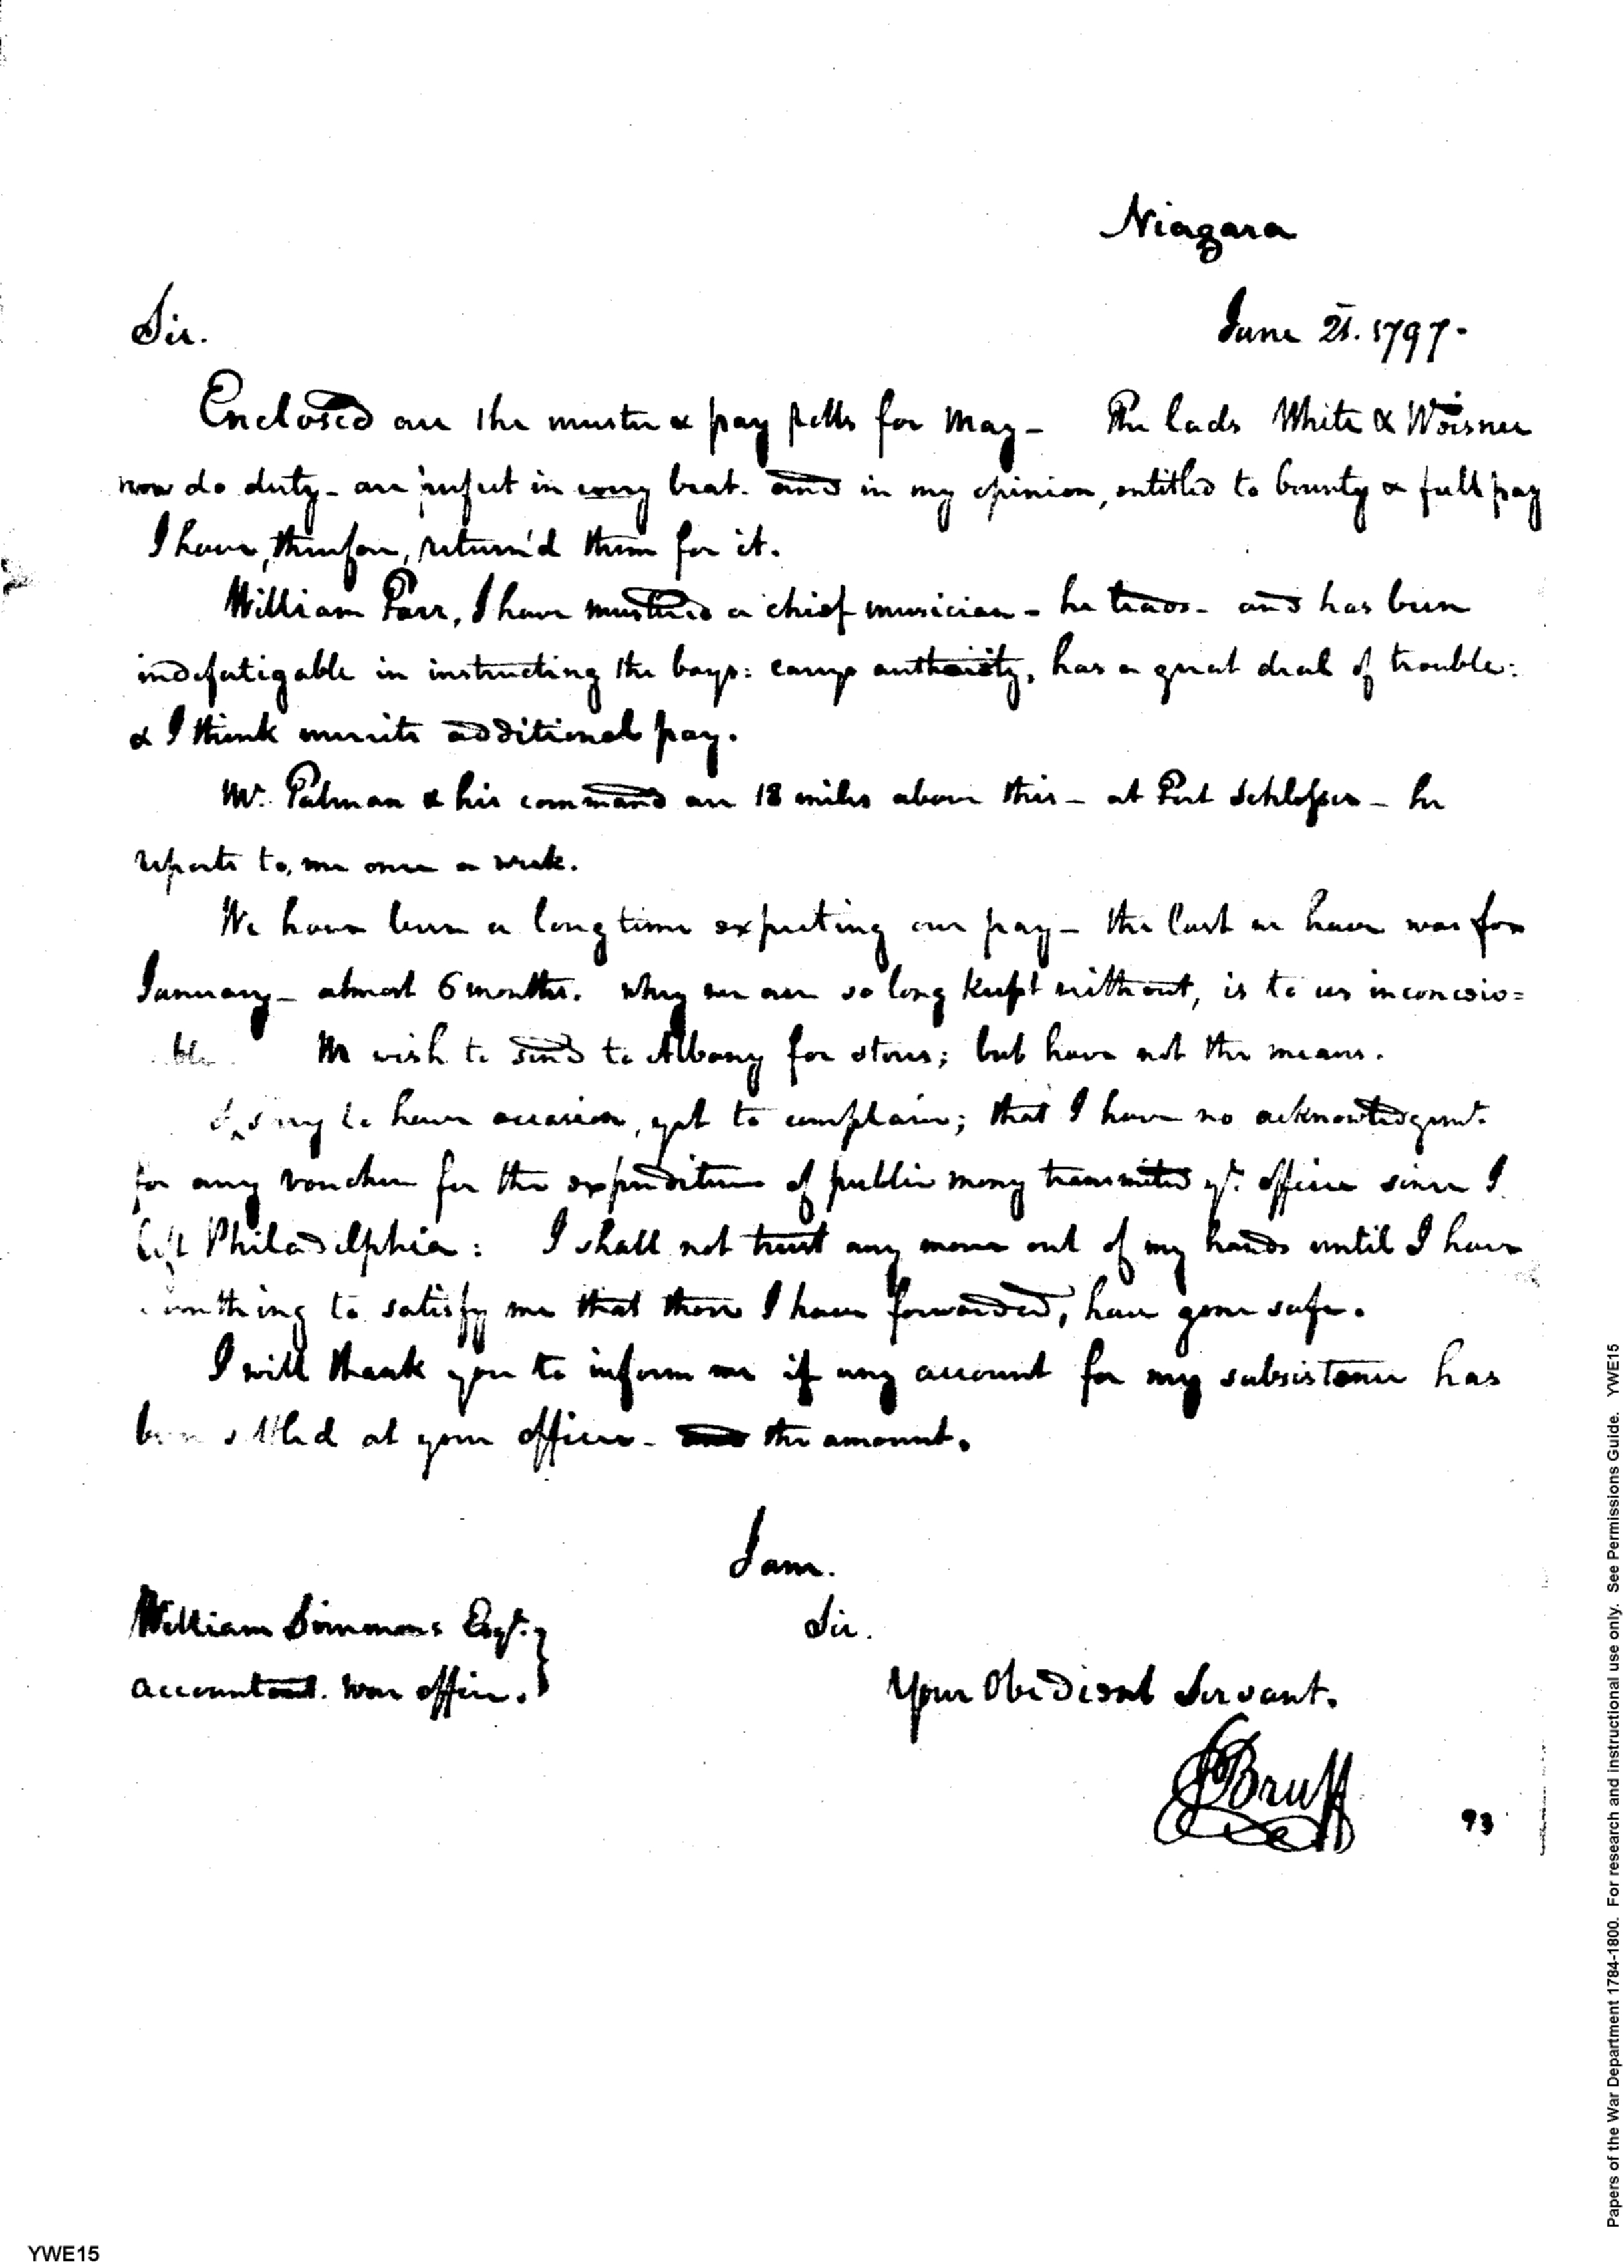 Niagara
Sir.
June 21. 1797.
Enclosed are the muster & pay rolls for May - The lads White & Woisner
now do duty - are perfect in every beat - and in my opinion, entitled to bounty & full pay
I have, therefore, return'd them for it.
William Parr, I have mustered a chief musician - he leads - and has been
indefatigable in instructing the boys: carrys authority, has a great deal of trouble:
& I think merits additional pay.
Mr. Palman & his command are 18 miles above this - at Fort Schlosser - he
reports to me once a week.
We have been a long time expecting our pay - the last we have was for
January - almost 6 months. why we are so long kept without, is to us inconceiv=
ble. We wish to send to Albany for stores; but have not the means.
I sorry to have occasion, yet to complain; that I have no acknowledgemt.
for any voucher for the expenditure of public mony transmited yr. office since I
left Philadelphia: I shall not trust any more out of my hands until I have
something to satisfy me that those I have forwarded, have gone safe.
I will thank you to inform me if any account for my subsistence has
been settled at your office - the amount.
I am.
William Simmons Esqr.
Sir.
accountant. War office.
Your Obedient Servant.
JBruff
93
YWE15
Papers of the War Department 1784-1800. For research and instructional use only. See Permissions Guide. YWE15